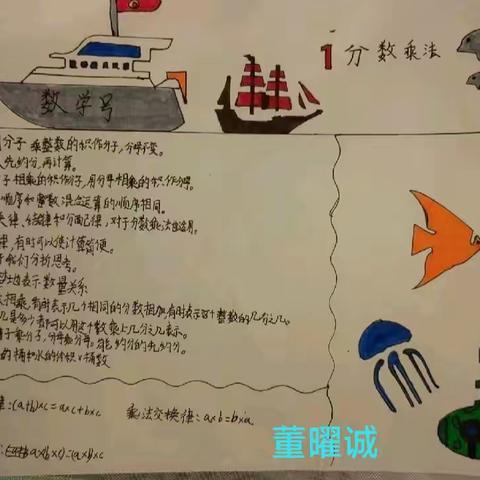 数学号
1 分数乘法
分子乘整数的积作分子，分母不变。
先约分，再计算。
子相乘的积作分子，用分母相乘的积作分母。
顺序和整数混合运算的顺序相同。
律、结合律和分配律，对于分数乘法也适用。
律，有时可以使计算简便。
我们分析思考。
表示数量关系
相乘，有时表示几个相同的分数相加，有时表示这个整数的几分之几。
几是多少，都可以用这个数乘上几分之几表示。
子乘分子，分母乘分母，能约分的先约分。
:(a+b)×c=a×c+b×c
乘法交换律:a×b=b×a
董曜诚